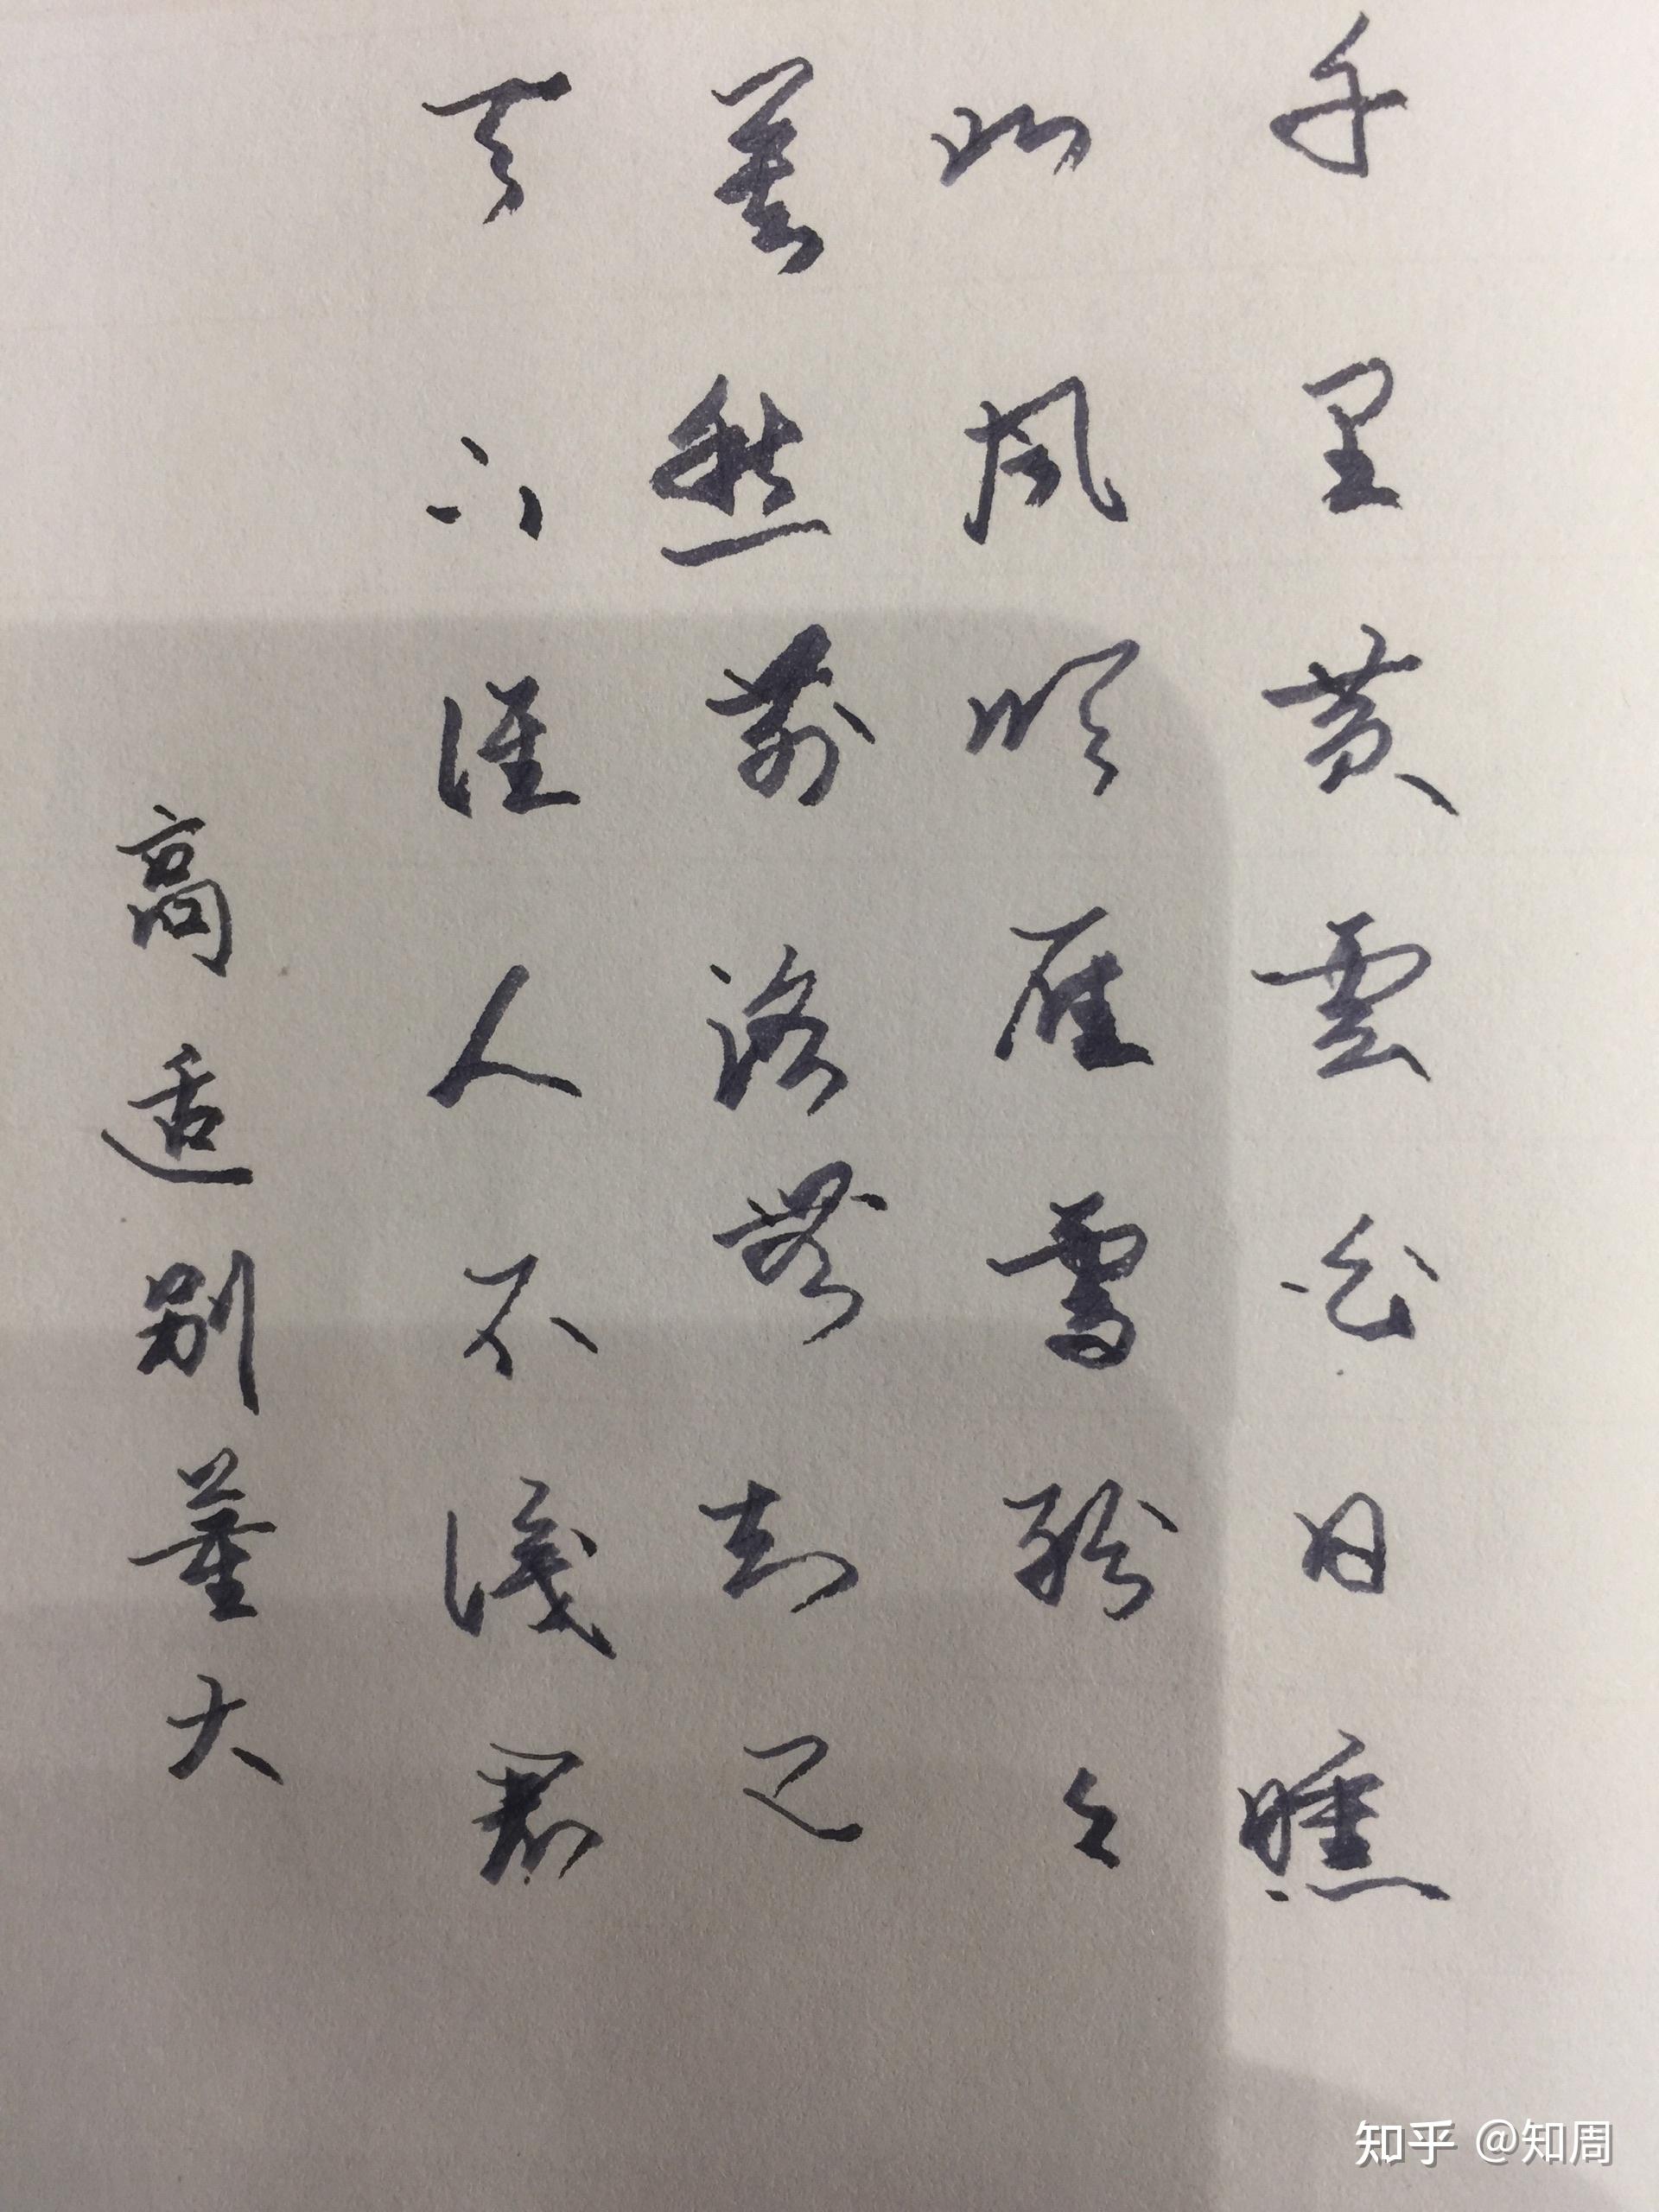 千里黄雲白日曛
北風吹雁雪紛々
莫愁前路無知己
天下誰人不識君
高适别董大
知乎 @知周